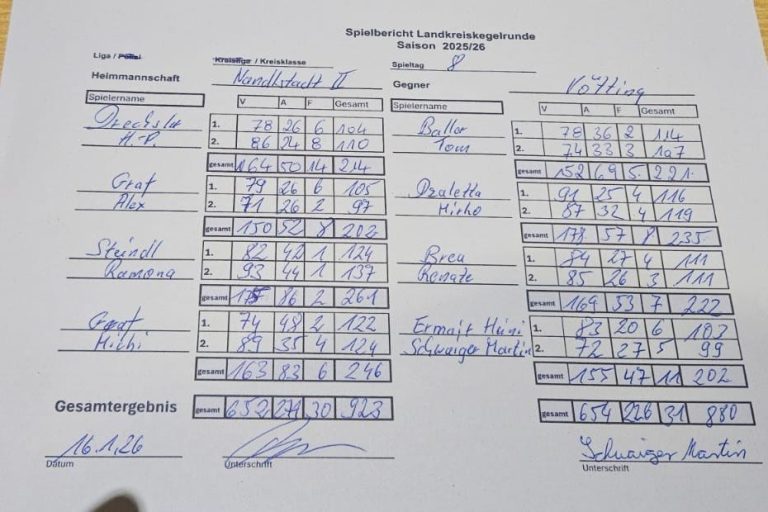 Spielbericht Landkreiskegelrunde
Saison 2025/26
Liga / Pokal Kreisliga / Kreisklasse Spieltag 8
Heimmannschaft Nandlstadt II Gegner Vötting
Spielername V A F Gesamt Spielername V A F Gesamt
Drechsler 1. 78 26 6 104 Baller 1. 78 36 2 114
H.P. 2. 86 24 8 110 Tom 2. 74 33 3 107
gesamt 164 50 14 214 gesamt 152 69 5 221
Graf 1. 79 26 6 105 1. 91 25 4 116
Alex 2. 71 26 2 97 Mirko 2. 87 32 4 119
gesamt 150 52 8 202 gesamt 178 57 8 235
Steindl 1. 82 42 1 124 Breu 1. 84 27 4 111
Ramona 2. 93 44 1 137 Renate 2. 85 26 3 111
gesamt 175 86 2 261 gesamt 169 53 7 222
Graf 1. 74 48 2 122 1. 83 20 6 103
Michi 2. 89 35 4 124 Schwaiger Martin 2. 72 27 5 99
gesamt 163 83 6 246 gesamt 155 47 11 202
Gesamtergebnis gesamt 652 271 30 923 gesamt 654 226 31 880
16.1.26 Schwaiger Martin
Datum Unterschrift Unterschrift